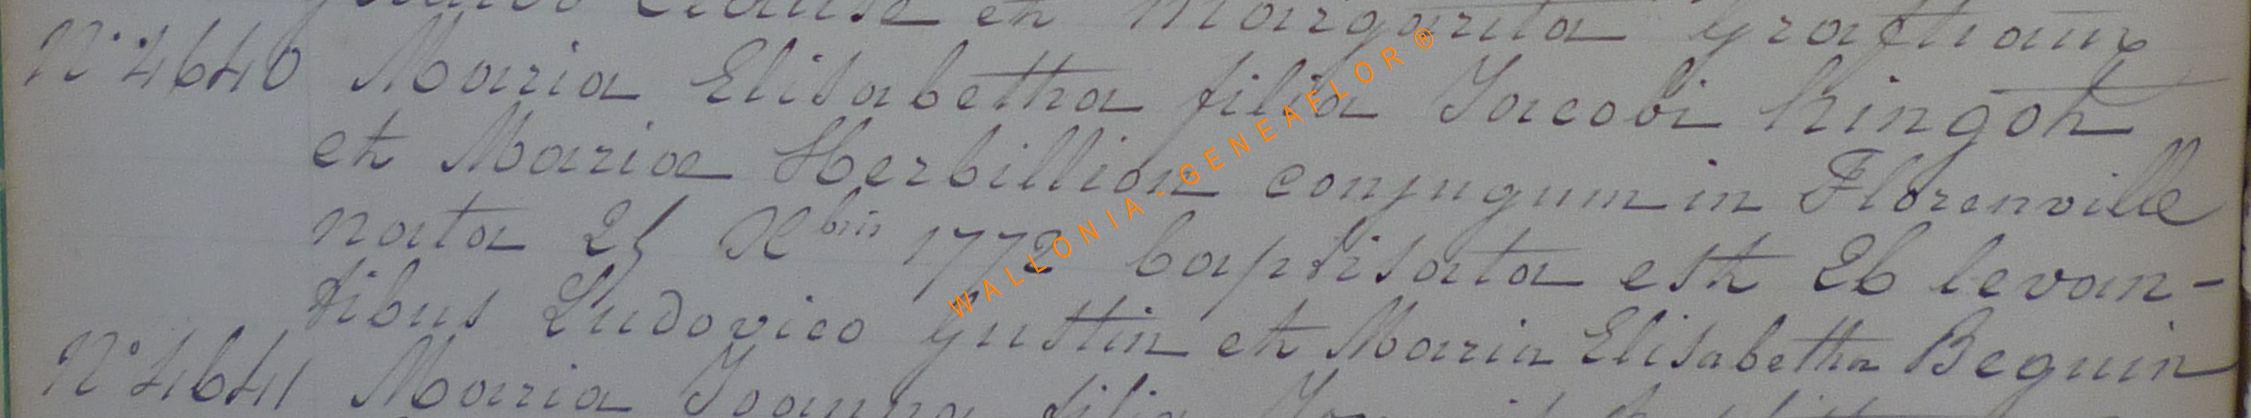 et Margarita
N° 4640 Maria Elisabetha filia Jacobi Ringot
et Mariæ Herbillion conjugum in Florenville
nata 25 Xbris 1772 baptisata est 26 levan-
tibus Ludovico Gustin et Maria Elisabetha Beguin
N° 4641 Maria Joanna filia
WALLONIA - GENEAFLOR ®